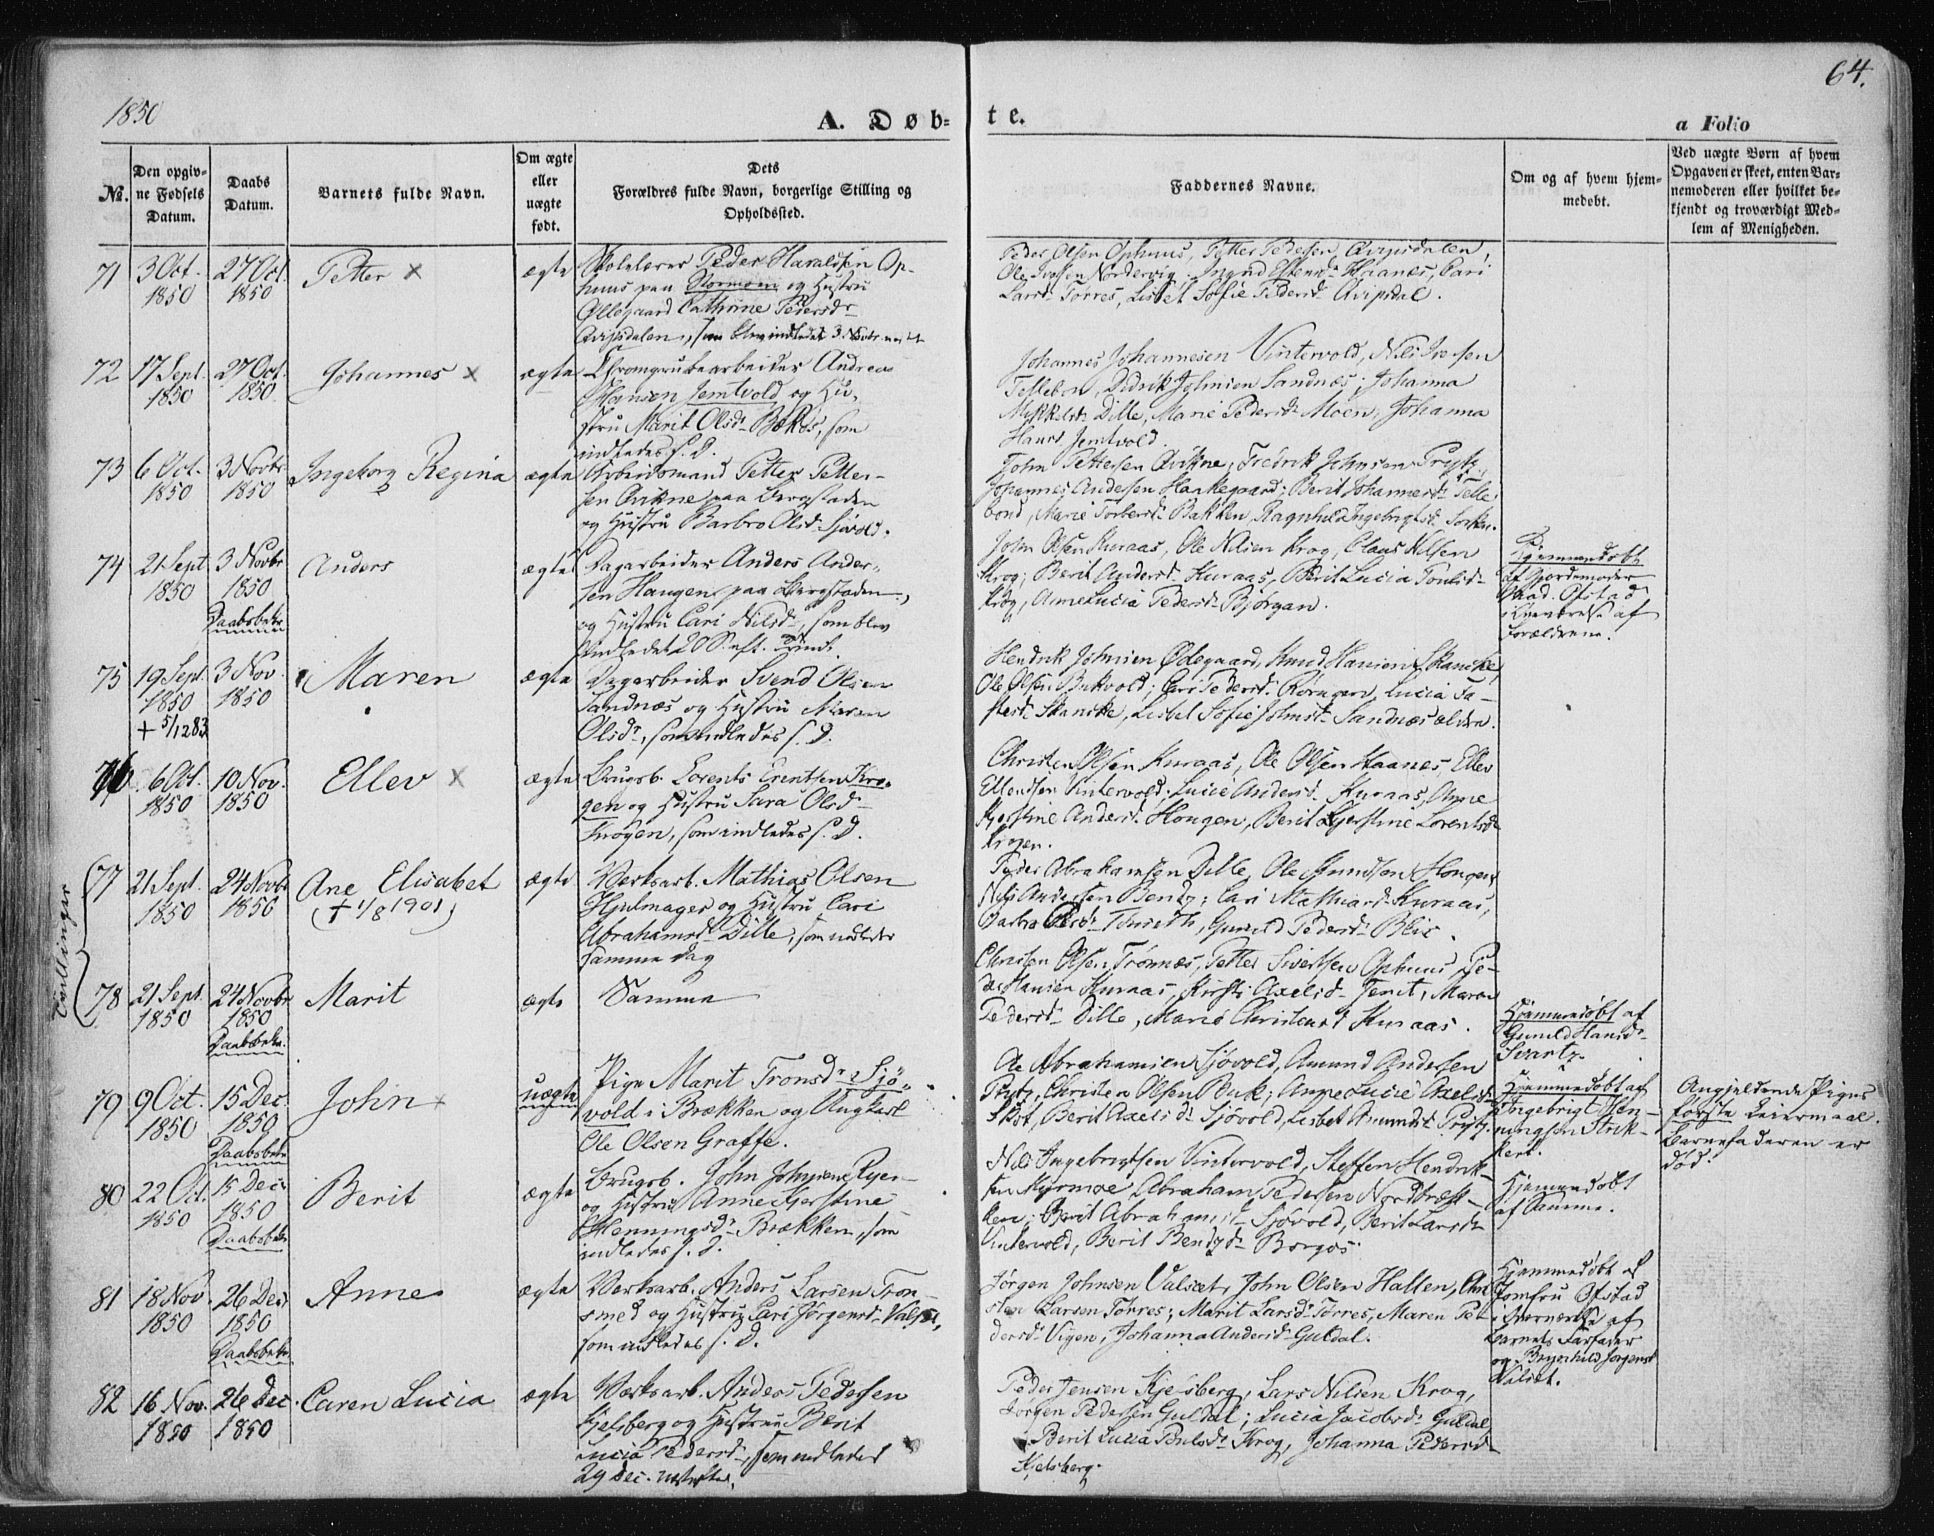 1850
64.
A. Døb=
te.
a Folio
№.
Den opgiv-
ne Fødsels
Datum.
Daabs
Datum.
Barnets fulde Navn.
Om ægte
eller
uægte
født.
Dets
Forældres fulde Navn, borgerlige Stilling og
Opholdssted.
Faddernes Navne.
Om og af hvem hjem-
medøbt.
Ved uægte Børn af hvem
Opgaven er skeet, enten Bar-
nemoderen eller hvilket be-
kjendt og troværdigt Med-
lem af Menigheden.
71
3 Oct.
1850
27 Oct.
1850
Petter ×
ægte
Skolelærer Peder Haraldsen Op-
huus paa Stormoen og Hustru
Ollegaard Cathrine Pedersdr
som blev indledet 3. Novbr
Peder Olsen Ophuus, Petter Pedersen
Ole Iversen Nordervig. Ingrid Haanæs, Cari
Larsdr Torres, Lisbet Sofie Pedersdr
72
17 Sept.
1850
27 Oct.
1850
Johannes ×
ægte
Chromgrubearbeider Andreas
Hansen Jemtvold og Hu-
stru Marit Olsdr Bækos, som
indledes s. D.
Johannes Johannesen Vintervold, Nils Iversen
Tellebon, Didrik Johnsen Sandnæs; Johanna
Mikkelsdr Dille, Marie Pedersdr Moen, Johanna
Hansdr Jemtvold.
73
6 Oct.
1850
3 Novbr
1850
Ingeborg Regina
ægte
Arbeidsmand Petter Petter-
sen Avikne paa Bergstaden
og Hustru Barbro Olsdr Sjøvold.
John Pettersen Avikne, Fredrik Johnsen Prytz,
Johannes Andersen Haakegaard; Berit Johannesdr Telle-
bond, Marie Torbersdr Bakken, Ragnhild Ingebrigtsdr
74
21 Sept
1850
3 Novbr
1850
Daabsbekr.
Anders
ægte
Dagarbeider Anders Ander-
sen Haugen paa Bergstaden,
og Hustru Cari Nilsdr, som blev
indledet 20 S. eft. Trinit.
John Olsen Kuraas, Ole Nilsen Krog, Claus Nilsen
Krog; Berit Andersdr Kuraas, Berit Lucia Poulsdr
Krog, Anne Lucia Pedersdr Bjørgan.
Hjemmedøbt
af Jordemoder
Mad. Ofstad
i Nærværelse af
Forældrene.
75
19 Sept.
1850
+ 5/12 83
3 Nov.
1850
Maren
ægte
Dagarbeider Svend Olsen
Sandnæs og Hustru Maren
Olsdr, som indledes s. D.
Hendrik Johnsen Ødegaard, Knud Hansen Skancke,
Ole Olsen Bukvold; Cari Pedersdr Røragen, Lucia Fa-
stesdr Skancke, Lisbet Sofie Johnsdr Sandnæs ældre.
76
6 Oct.
1850
10 Nov.
1850
Ellev ×
ægte
Brugsb. Lorents Erentsen Kro-
gen og Hustru Sara Olsdr
Krogen, som indledes s. D.
Christen Olsen Kuraas, Ole Olsen Haanæs, Ellev
Ellevsen Vintervold; Lucie Andersdr Kuraas, Anne
Kjerstine Andersdr Hougen, Berit Kjerstine Lorentsdr
Krogen.
Tvillinger
77
21 Sept.
1850
24 Novbr
1850
Ane Elisabet
(+ 1/8 1901)
ægte
Værksarb. Mathias Olsen
Hjulmager og Hustru Cari
Abrahamsdr Dille, som indledes
samme Dag
Peder Abrahamsen Dille, Ole Amundsen Hougen,
Nils Andersen Bentz; Cari Mathiasdr Kuraas,
Barbro Olsdr Tamneth, Gunild Pedersdr
78
21 Sept.
1850
24 Novbr
1850
Daabsbekr.
Marit
ægte
Samme
Christen Olsen Trønnæs, Petter Sivertsen Ophuus, Pe-
der Hansen Kuraas, Kirsti Axelsdr Femit, Maren
Pedersdr Dille, Marie Christensdr Kuraas.
Hjemmedøbt af
Gunild Hansdr
Svartz.
79
9 Oct.
1850
15 Dec.
1850
Daabsbekr.
John ×
uægte
Pige Marit Tronsdr Sjø-
vold i Brækken og Ungkarl
Ole Olsen Graffe.
Ole Abrahamsen Sjøvold, Amund Andersen
Prytz, Christen Olsen Buk; Anne Lucie Axelsdr
Skot, Berit Axelsdr Sjøvold, Lisbet Amundsdr Prytz.
Hjemmedøbt af
Ingebrigt Hen-
ningsen Strik-
kert.
Angjeldende Piges
første Leiermaal.
Barnefaderen er
død.
80
22 Oct.
1850
15 Dec.
1850
Daabsbekr.
Berit
ægte
Brugsb. John Johnsen Ryen
og Hustru Anne Kjerstine
Henningsdr Brækken, som
indledes s. D.
Nils Ingebrigtsen Vintervold, Steffen Hendrik-
sen Myrmoe, Abraham Pedersen Nordbræk-
ken; Berit Abrahamsdr Sjøvold, Berit Larsdr
Vintervold, Berit Bendzdr Borgos.
Hjemmedøbt
af Samme.
81
18 Nov.
1850
26 Decr
1850
Daabsbekr.
Anne
ægte
Værksarb. Anders Larsen Tron-
smed og Hustru Cari Jørgensdr Valset,
som indledes s. D.
Jørgen Johnsen Valset, John Olsen Hallen, Chri-
sten Larsen Torres; Marit Larsdr Torres, Maren Pe-
dersdr Vigen, Johanna Andersdr Guldal.
Hjemmedøbt af
Jomfru Ofstad
i Nærværelse af
Barnets Farfader
og Brynhild Jørgensdr
Valset.
82
16 Nov.
1850
26 Dec.
1850
Caren Lucia
ægte
Værksarb. Anders Pedersen
Kjelsberg og Hustru Berit
Lucia Pedersdr, som indledes
29 Dec. næstefter.
Peder Jensen Kjelsberg, Lars Nilsen Krog,
Jørgen Pedersen Guldal; Lucia Jacobsdr Guldal,
Berit Lucia Poulsdr Krog, Johanna Pedersdr
Kjelsberg.